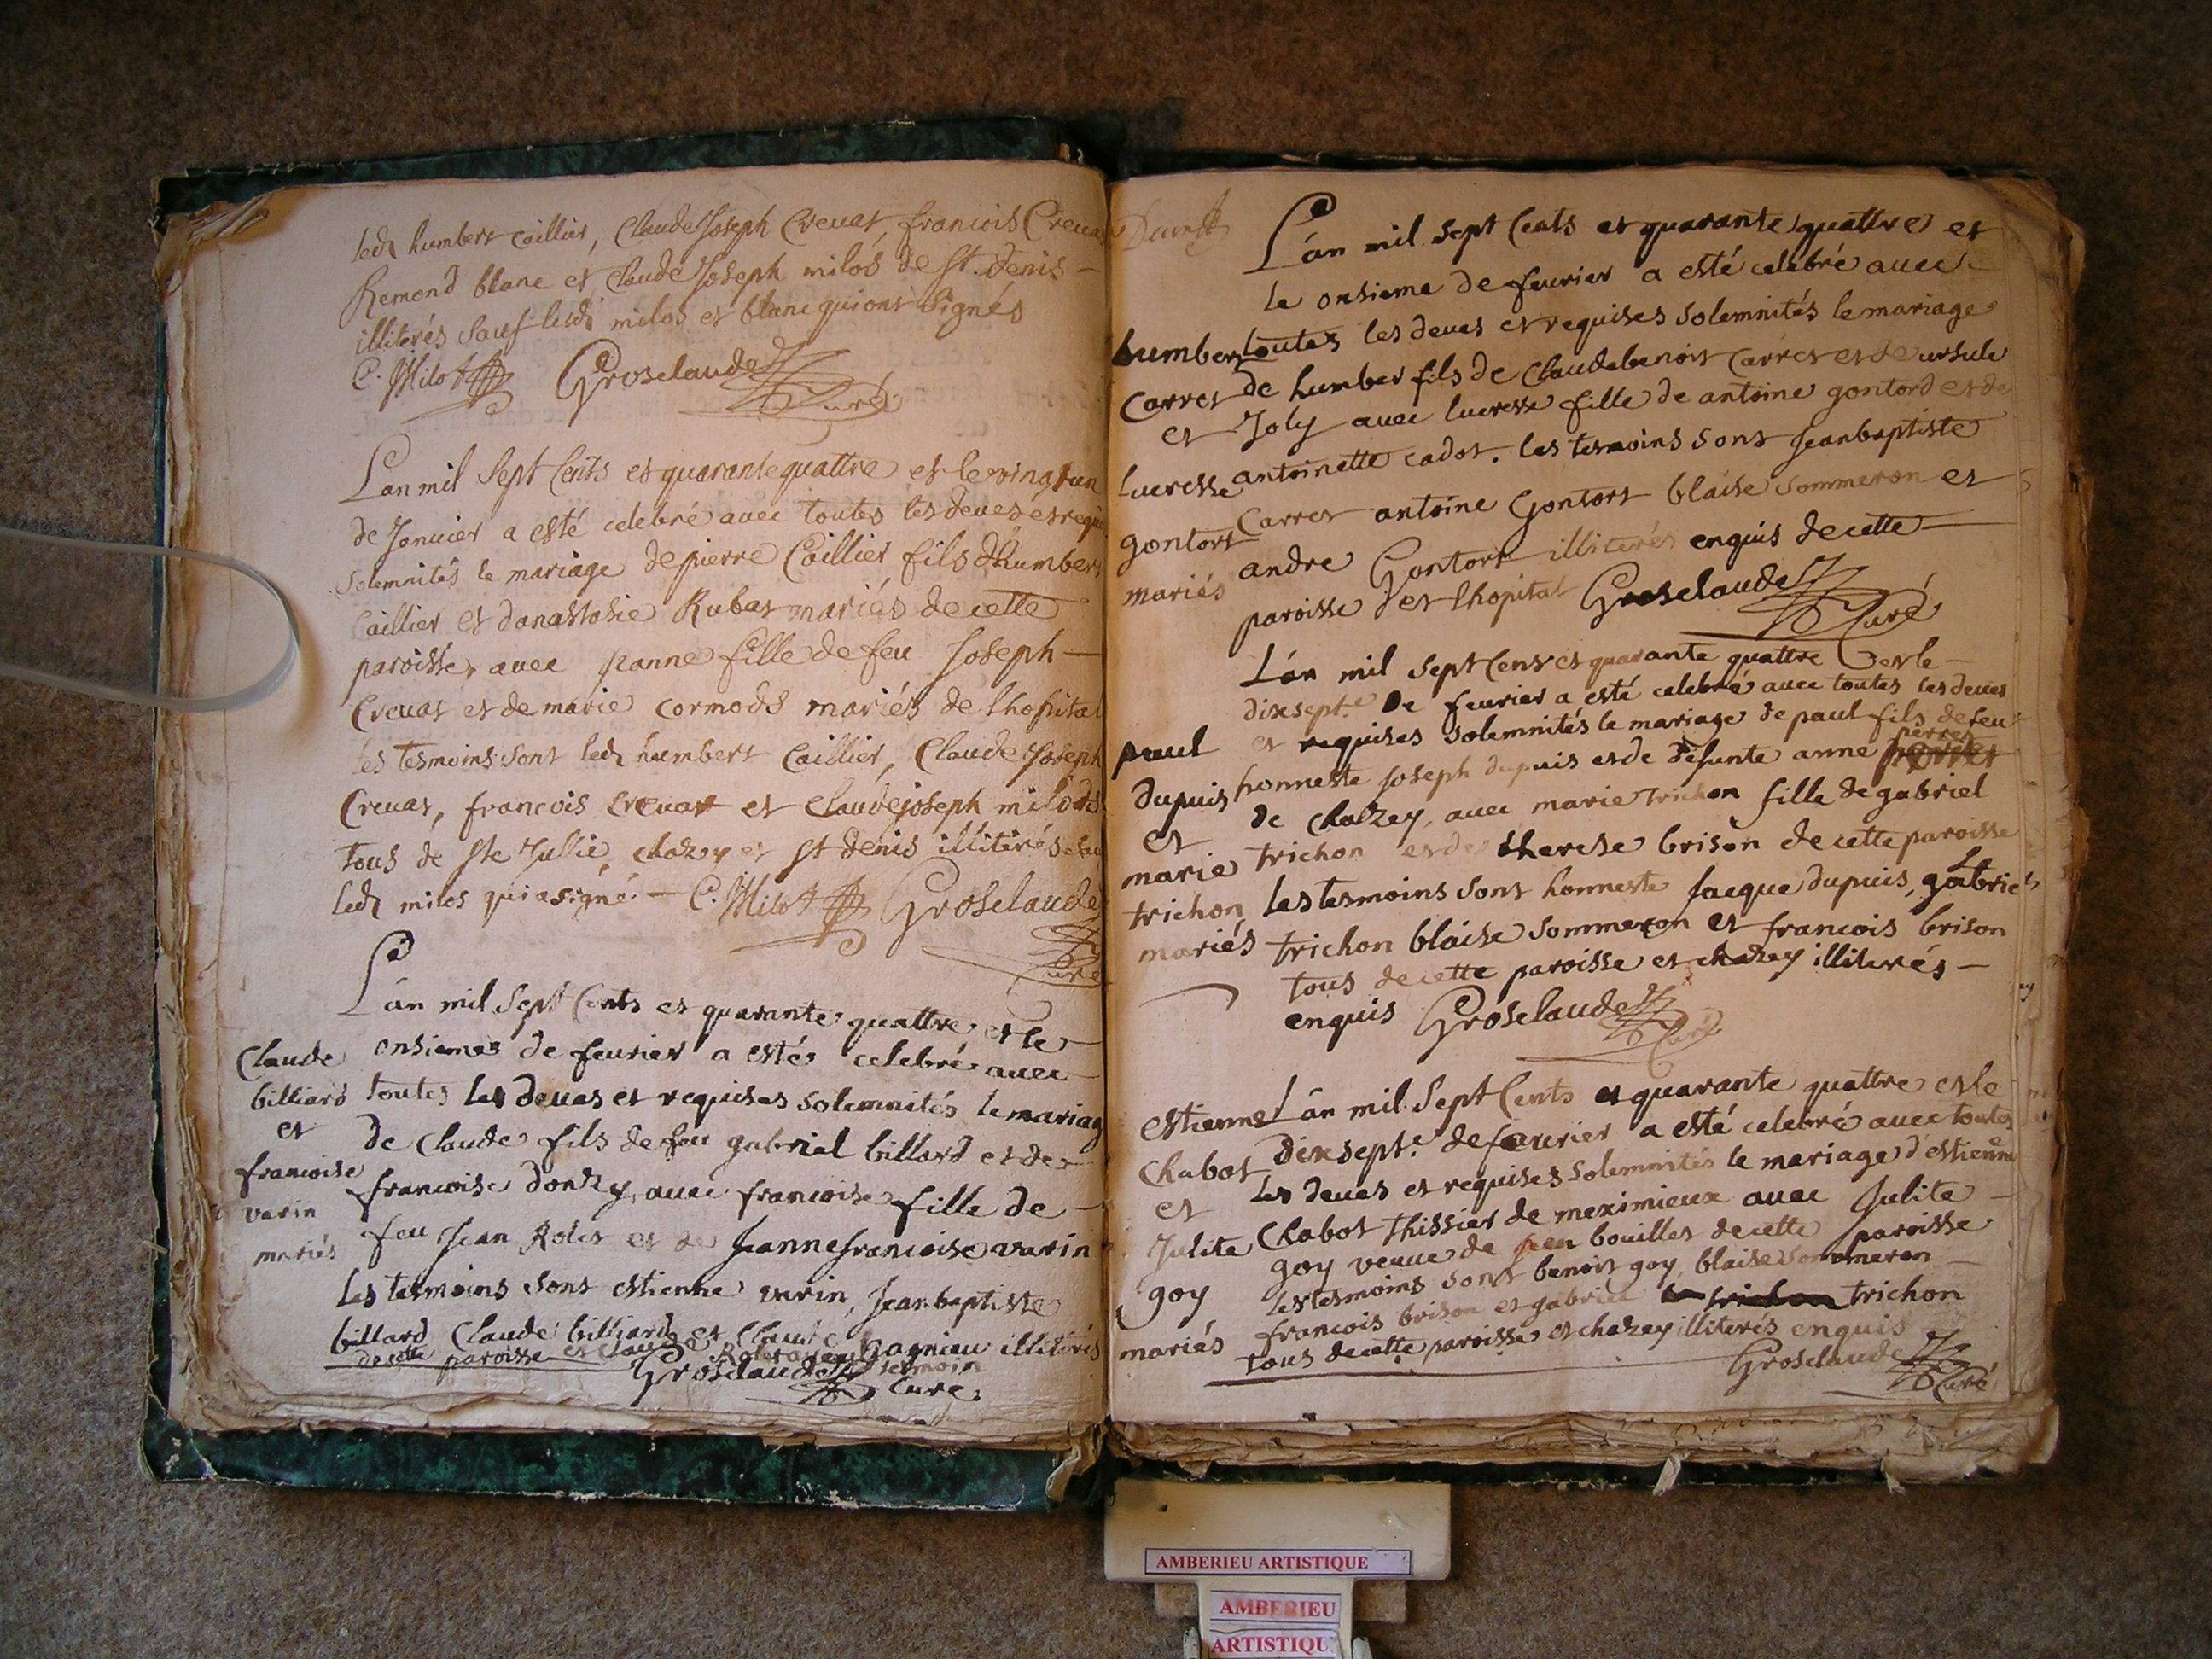 ledt humbert caillier, Claude Joseph Crevat, francois Creva
Remond blanc et claude Joseph milos de St. denis
illiterés sauf lesdt milos et blanc qui ont signés
C. Milot Groselaude
Curé
Lan mil sept Cents et quarante quattre et le vingt un
de Janvier a esté celebré avec toutes les deues et requi
solemnités le mariage de pierre Caillier fils dhumbert
Caillier et danastasie Rubat mariés de cette
paroisse, avec jeanne fille de feu Joseph
Crevat et de marie cormods mariés de lhopital
les tesmoins sont ledt humbert Caillier, Claude Joseph
Crevat, francois crevat et claude joseph milods
tous de Ste Jullie, chazey et St denis illiterés
ledt milos qui a signé. C. Milot Groselaude
Curé
Lán mil sept Cents et quarante quattre et le
onsieme de feurier a esté celebré avec
toutes les deues et requises solemnités le mariag
de claude fils de feu gabriel billard et de
francoise donzy, avec francoise fille de
feu Jean Rolet et de Jeanne francoise varin
les tesmoins sont estienne varin, Jean baptiste
billard Claude billiard et claude gagnieu illiterés
de cette paroisse et claude
Groselaude
Curé
Claude
billiard
et
francoise
varin
mariés
Lán mil sept Cents et quarante quattre et
le onsieme de feurier a esté celebré avec
toutes les deues et requises solemnités le mariage
de humber fils de Claude benoit Carret et de ursule
Joly avec lucresse fille de antoine gontord et de
antoinette cadot. les tesmoins sont Jean baptiste
Carret antoine Gontort blaise sommeron et
andre Gontort illiterés enquis de cette
paroisse et lhopital Groselaude
Curé
humbert
Carret
et
lucresse
gontort
mariés
Lán mil sept Cens et quarante quattre et le
dixsept.e de feurier a esté celebré avec toutes les deues
et requises solemnités le mariage de paul fils de feu
honneste Joseph dupuis et de defunte anne perret
de Chazey, avec marie trichon fille de gabriel
trichon et de therese brison de cette paroisse
les tesmoins sont honneste Jacque dupuis, gabriel
trichon blaise sommeron et francois brison
tous de cette paroisse et chazey illiterés
enquis Groselaude
Curé
paul
dupuis
et
marie
trichon
mariés
Lán mil sept Cents et quarante quattre et le
dixsept.e de feurier a esté celebré avec toutes
les deues et requises solemnités le mariage d'estienne
Chabot thissier de meximieux avec Julite
goy veuue de bouilles de cette paroisse
les tesmoins sont benoit goy, blaise sommeron
francois brison et gabriel trichon
tous de cette paroisse et chazey illiterés enquis
Groselaude
Curé
estienne
Chabot
et
Julite
goy
mariés
AMBERIEU ARTISTIQUE
AMBERIEU
ARTISTIQU